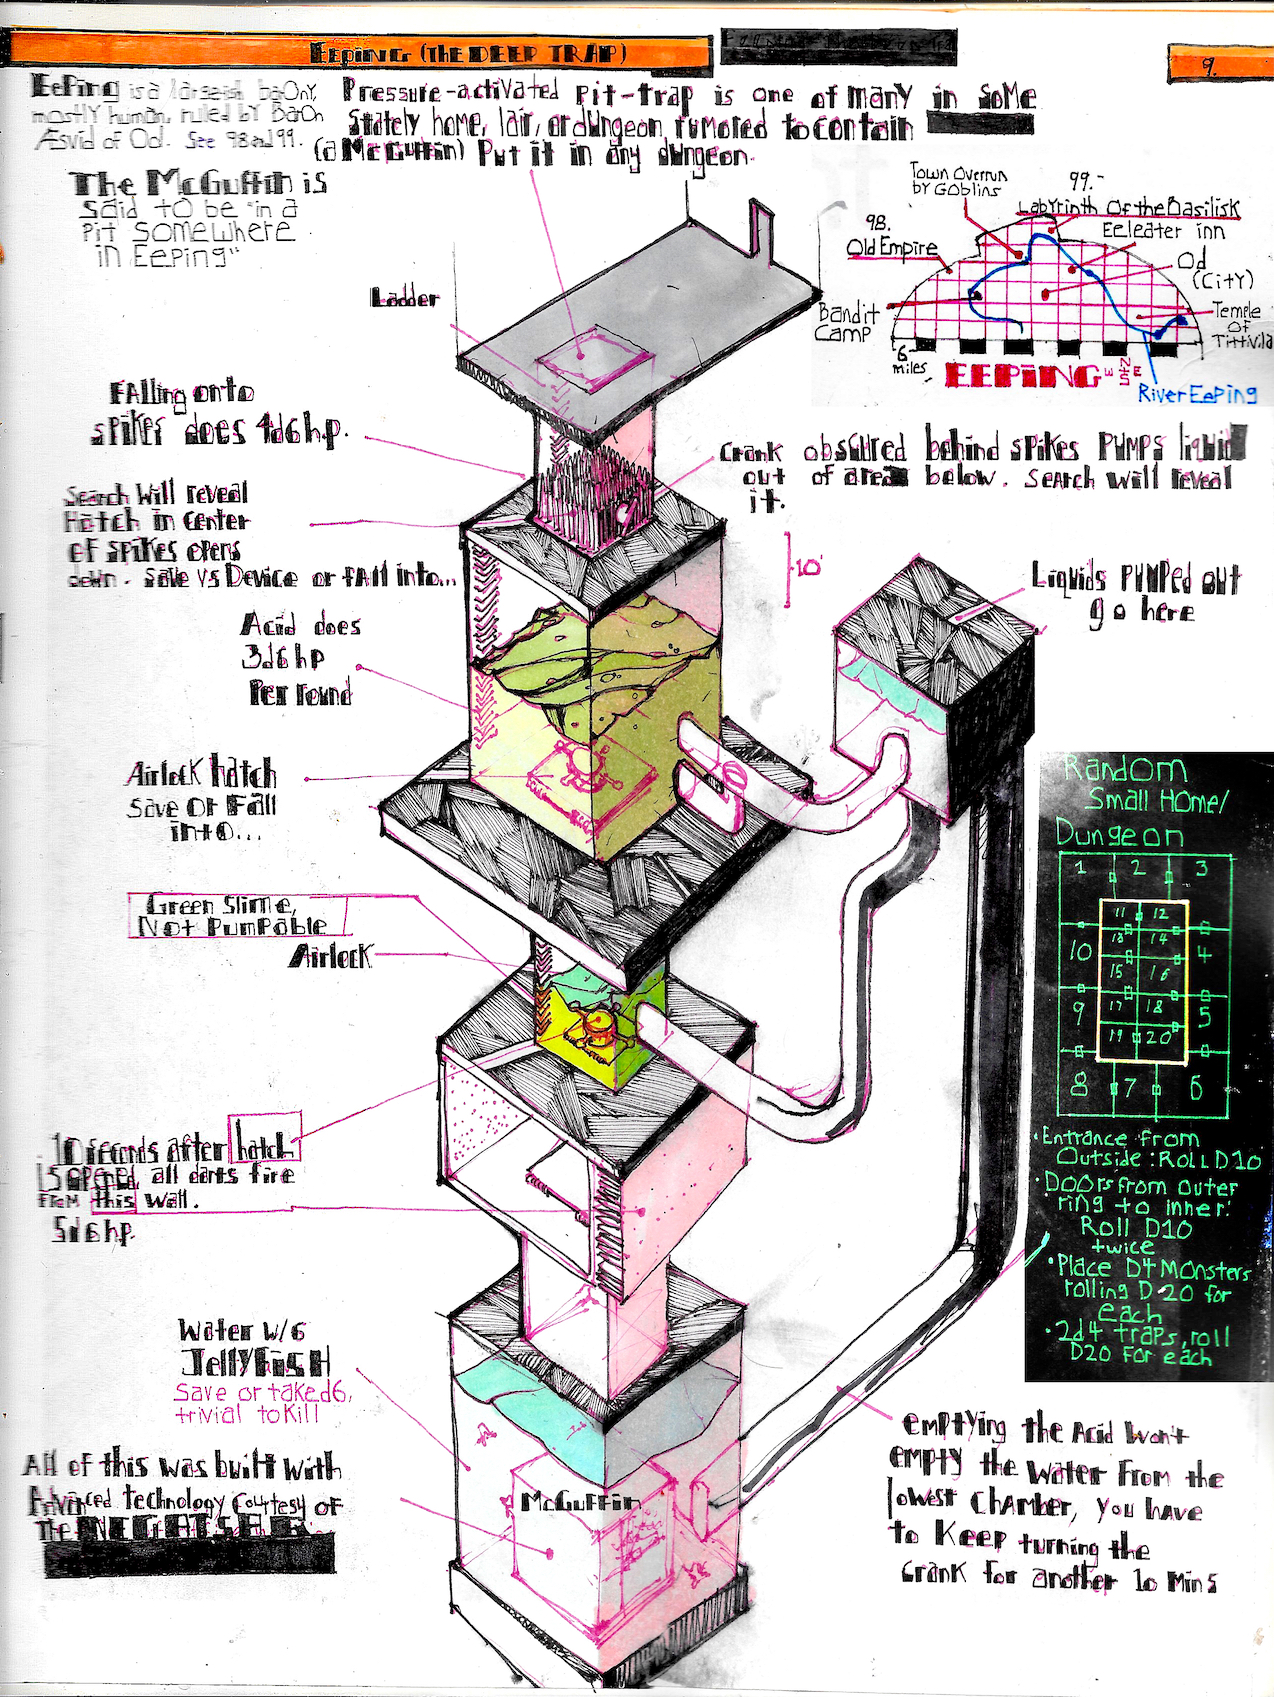 EEPING (THE DEEP TRAP)
9.
EePing is a largeish barony,
mostly human, ruled by Baron
Æsvid of Od. See 98 and 99.
Pressure-activated pit-trap is one of many in some
stately home, lair, or dungeon rumored to contain
(a McGuffin) Put it in any dungeon.
The McGuffin is
said to be "in a
pit somewhere
in Eeping"
Town Overrun
by Goblins
99.-
Labyrinth Of the Basilisk
98.
Old Empire
Eeleater inn
Od
(City)
Bandit
Camp
Temple
of
Tittivila
6
miles
EEPING
W N E S
River Eeping
Ladder
Falling onto
spikes does 4d6 h.p.
Crank obscured behind spikes pumps liquid
out of areas below. Search will reveal
it.
Search will reveal
Hatch in center
of spikes opens
down. Save vs Device or fall into...
10'
Liquids pumped out
go here
Acid does
3d6 hp
Per round
Airlock hatch
Save or Fall
into...
Green Slime,
Not Pumpable
Airlock
Random
Small Home/
Dungeon
1 2 3
11 12
10 13 14 4
15 16
9 17 18 5
19 20
8 7 6
• Entrance from
Outside: Roll D10
• Doors from outer
ring to inner:
Roll D10
twice
• Place D4 Monsters
rolling D20 for
each
• 2d4 traps, roll
D20 for each
10 seconds after hatch
is opened, all darts fire
from this wall.
5d6 hp.
Water w/6
Jellyfish
Save or take d6,
trivial to kill
McGuffin
All of this was built with
Advanced technology courtesy of
The
Emptying the Acid won't
empty the water from the
lowest chamber, you have
to keep turning the
crank for another 10 mins